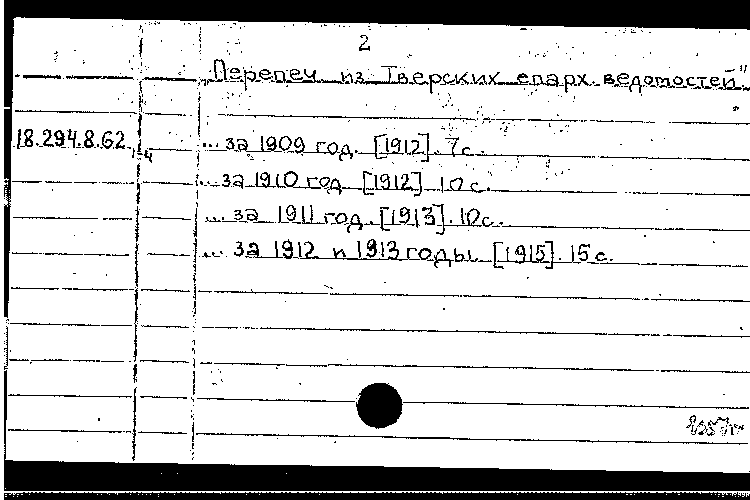 2
„Перепеч. из Тверских епарх. ведомостей"
18.294.8.62 1-4 ... за 1909 год. [1912]. 7с.
... за 1910 год [1912] 10с.
... за 1911 год. [1913]. 10с.
... за 1912 и 1913 годы. [1915]. 15с.